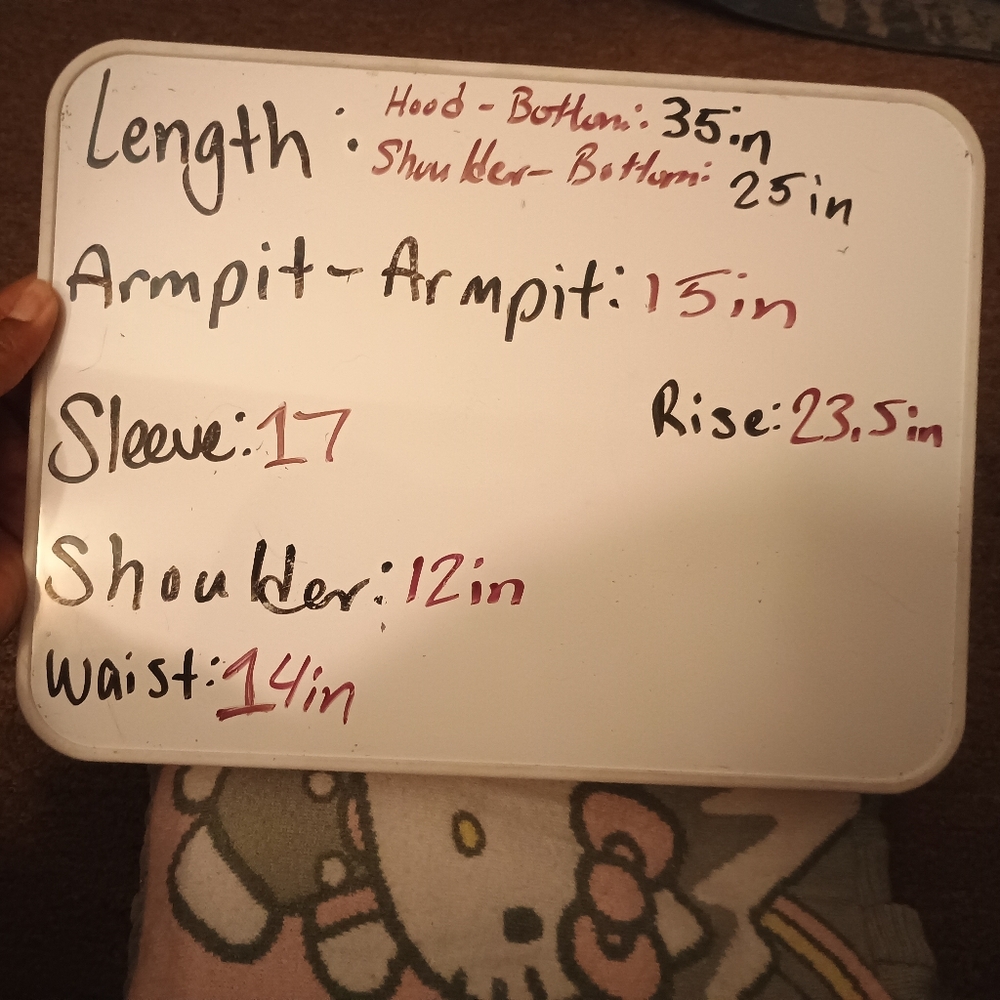 Length: Hood - Bottom: 35in
Shoulder - Bottom: 25in
Armpit - Armpit: 15in
Sleeve: 17
Rise: 23.5in
Shoulder: 12in
Waist: 14in